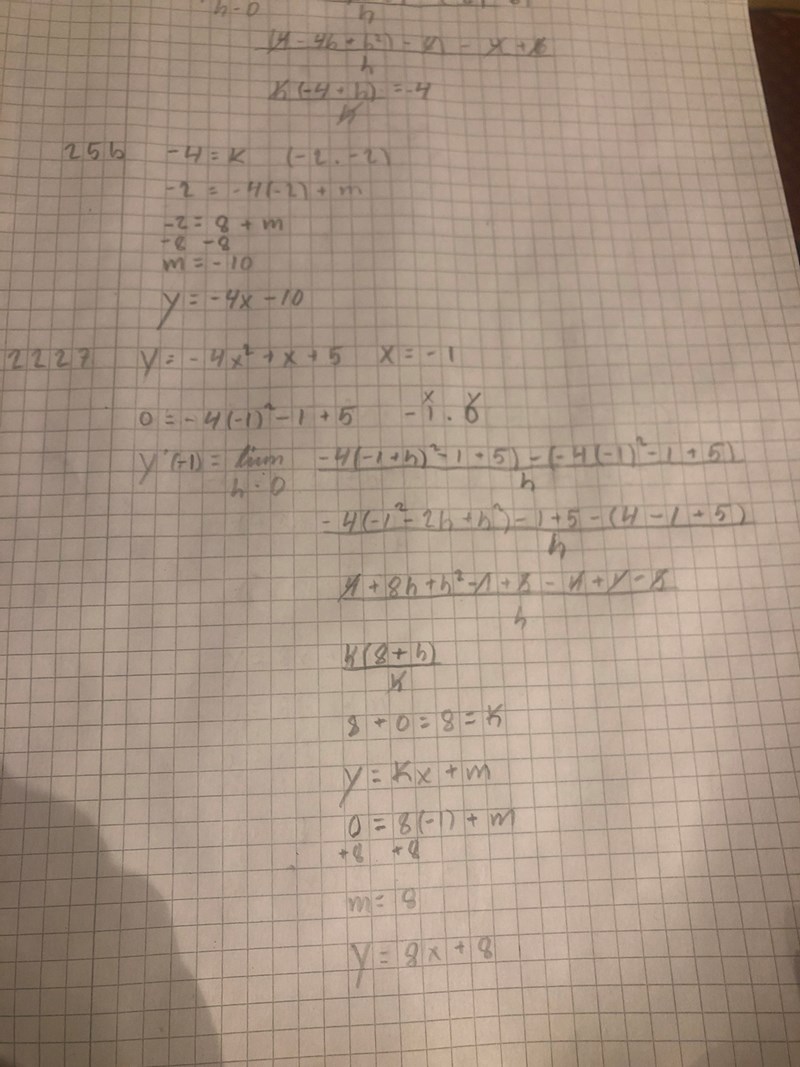 h→0 h
(4 - 4h + h²) - 4 - 4 + 4
h
h(-4 + h) = -4
h
25b -4 = k (-2 . -2)
-2 = -4(-2) + m
-2 = 8 + m
-8 -8
m = -10
y = -4x - 10
2227 y = -4x² + x + 5 x = -1
0 = -4(-1)² - 1 + 5 -1 . 0
x y
y'(-1) = lim -4(-1+h)² - 1 + 5) - (-4(-1)² - 1 + 5)
h→0 h
-4(-1² - 2h + h²) - 1 + 5 - (4 - 1 + 5)
h
4 + 8h + h² - 1 + 5 - 4 + 1 - 5
h
h(8 + h)
h
8 + 0 = 8 = k
y = kx + m
0 = 8(-1) + m
+8 +8
m = 8
y = 8x + 8